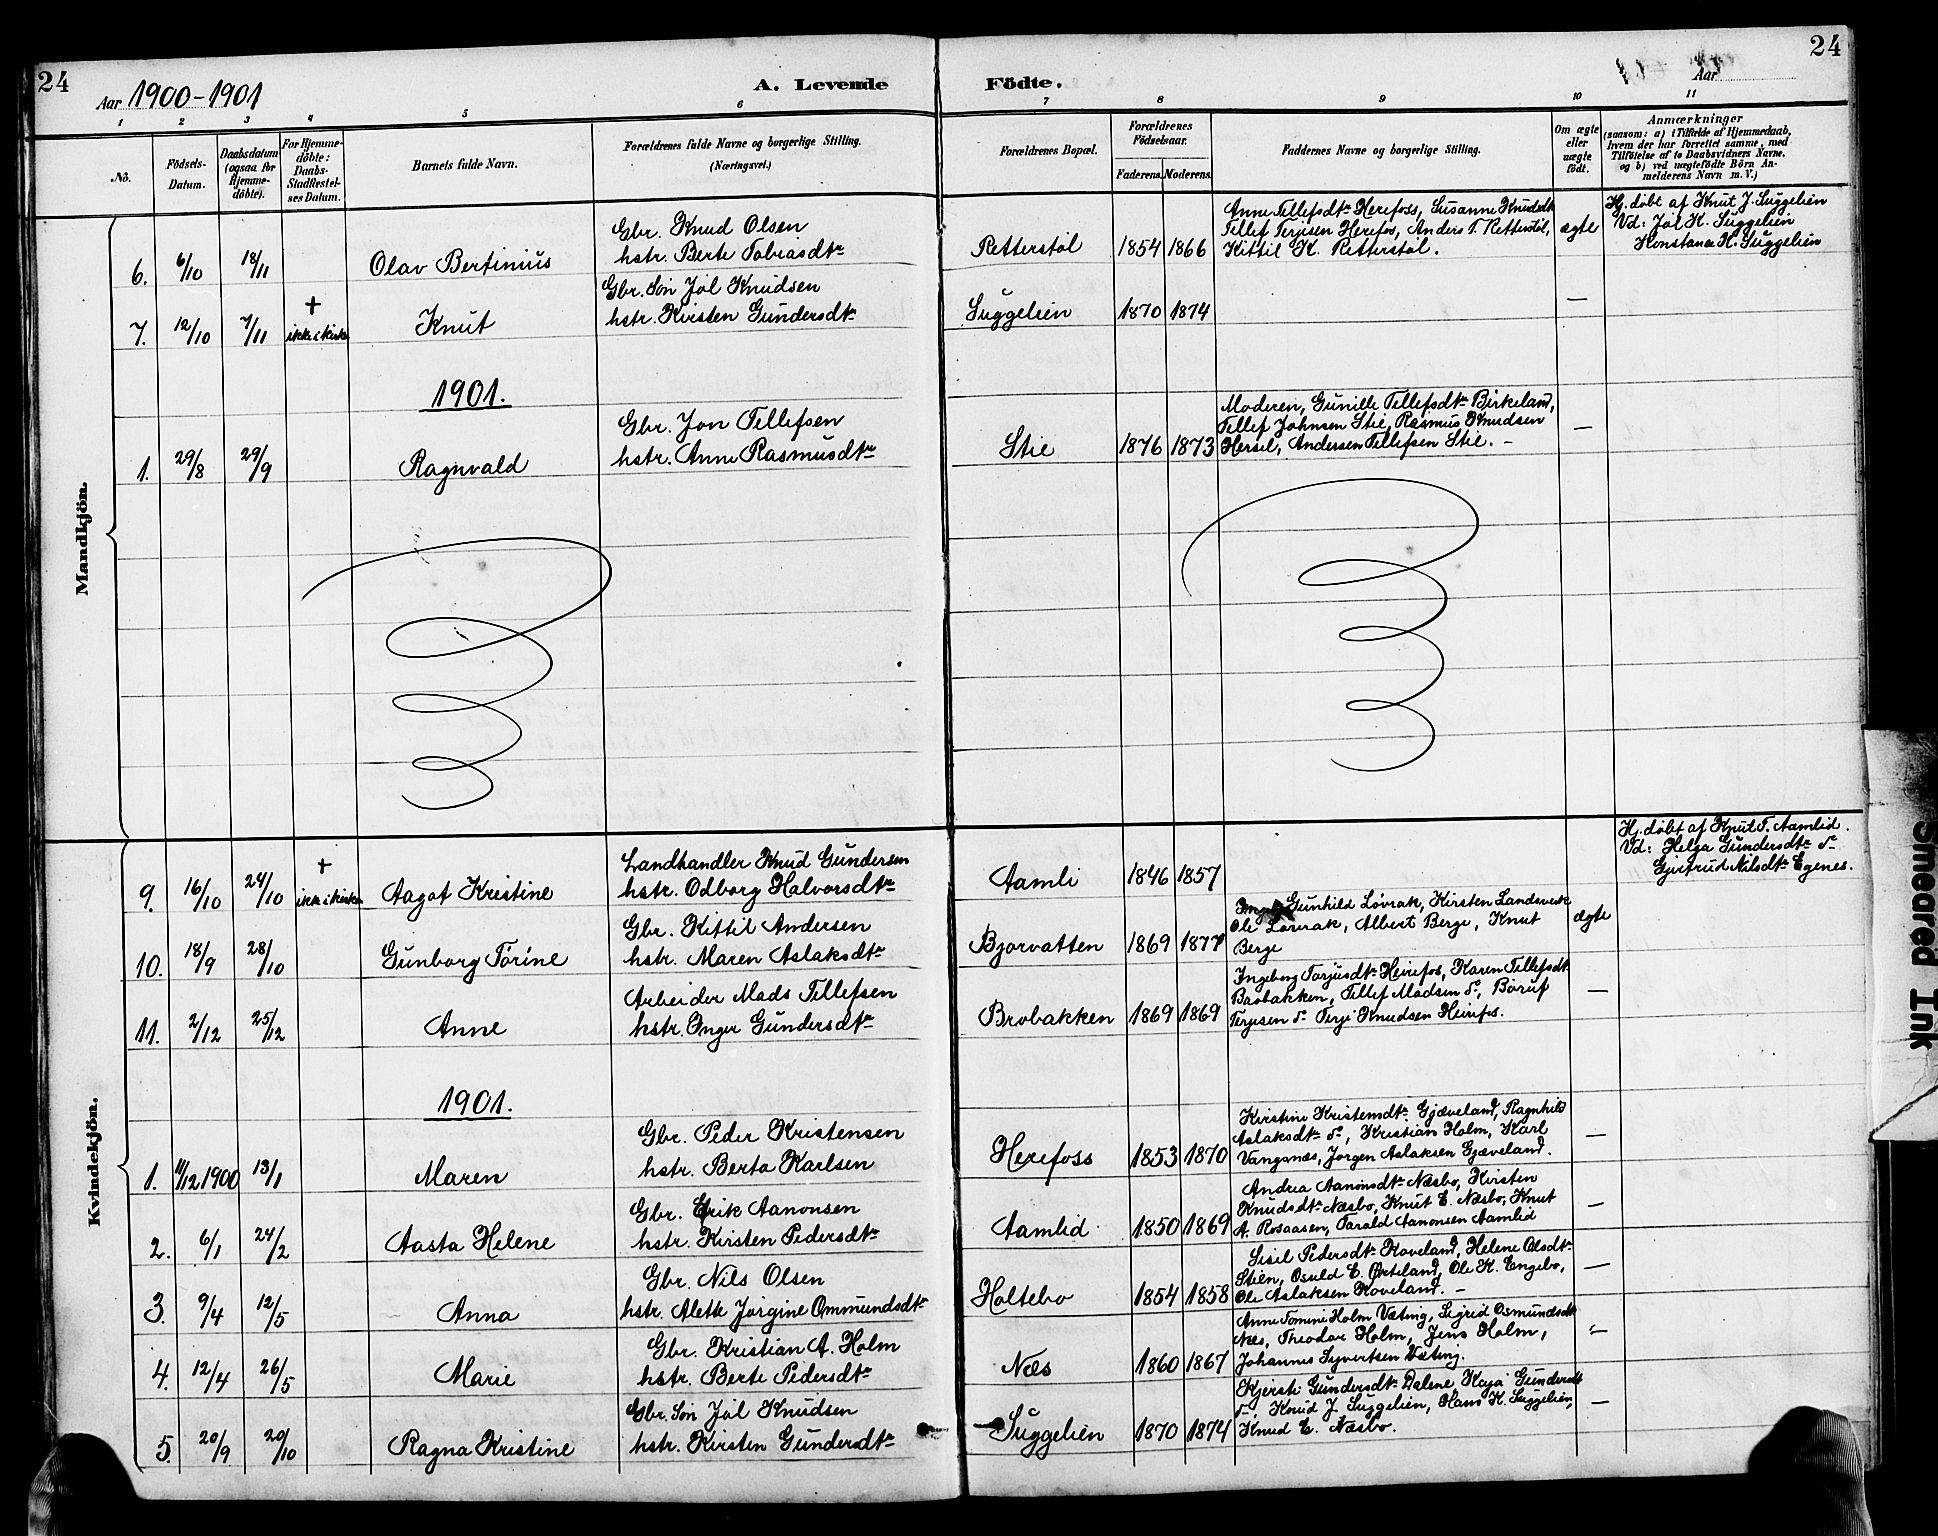 24
Aar 1900-1901
A. Levende
Fødte.
Aar
24
1 2 3 4 5 6 7 8 9 10 11
No.
Födsels-Datum.
Daabsdatum (ogsaa for Hjemme-döbte).
For Hjemme-döbte: Daabs-Stadfæstel-ses Datum.
Barnets fulde Navn.
Forældrenes fulde Navne og borgerlige Stilling. (Næringsvei.)
Forældrenes Bopæl.
Forældrenes Födselsaar.
Faderens. Moderens.
Faddernes Navne og borgerlige Stilling.
Om ægte eller uægte födt.
Anmærkninger
(saasom: a) i Tilfælde af Hjemmedaab, hvem der har forrettet samme, med Tilföielse af to Daabsvidners Navne, og b) ved uægtefödte Börn An-melderens Navn m. V.)
Mandkjön.
6. 6/10 18/11 Olav Bertinius
Gbr. Knud Olsen
hstr. Berte Tobiasdtr
Retterstøl 1854 1866
Anne Tellefsdtr Herefoss, Susanne Knudsdtr
Tellef Terjesen Herefos, Anders T. Retterstøl,
Kittil K. Retterstøl.
ægte
Hj. døbt af Knut J. Suggelien
Vd: Jøl K. Suggelien
Konstance K. Suggelien
7. 12/10 7/11 + ikke i kirke Knut
Gbr. Søn Jøl Knudsen
hstr. Kirsten Gundersdtr
Suggelien 1870 1874 —
1901.
1. 29/8 29/9 Ragnvald
Gbr. Jon Tellefsen
hstr. Anne Rasmusdtr
Stie 1876 1873
Moderen, Gunille Tellefsdtr Birkeland,
Tellef Johnsen Stie, Rasmus Knudsen
Hersel, Andersen Tellefsen Stie. —
—
Kvindekjön.
9. 16/10 24/10 + ikke i kirken Aagot Kristine
Landhandler Knud Gundersen
hstr. Odborg Halvorsdtr
Aamli 1846 1857
Hj. døbt af Knut T. Aamlid.
Vd: Helga Gundersdtr do
Gjertrud Nilsdtr Egenes.
10. 18/9 28/10 Gunborg Tørine
Gbr. Kittil Andersen
hstr. Maren Aslaksdtr
Bjorvatten 1869 1877
Gunhild Løvrak, Kirsten Landsverk
Ole Løvrak, Albert Berge, Knut
Berge
ægte
11. 2/12 25/12 Anne
Arbeider Mads Tellefsen
hstr. Inger Gundersdtr
Brobakken 1869 1869
Ingeborg Tarjusdtr Heirefos, Karen Tellefsdtr
Brobakken, Tellef Madsen do, Børuf
Terjesen do Terje Knudsen Heirefos.
—
1901.
1. 11/12 1900 13/1 Maren
Gbr. Peder Kristensen
hstr. Berta Karlsen
Herefoss 1853 1870
Kirstine Kristensdtr Gjæveland, Ragnhild
Aslaksdtr do, Kristian Holm, Karl
Vangsnæs, Jørgen Aslaksen Gjæveland.
—
2. 6/1 24/2 Aasta Helene
Gbr. Erik Aanonsen
hstr. Kirsten Pedersdtr
Aamlid 1850 1869
Andrea Aanonsdtr Næsbø, Kirsten
Knudsdtr Næsbø, Knut E. Næsbø, Knut
A. Rosaasen, Tarald Aanonsen Aamlid
—
3. 9/4 12/5 Anna
Gbr. Nils Olsen
hstr. Alette Jørgine Ommundsdtr
Holtebo 1854 1858
Sisil Pedersdtr Roveland, Helene Olsdtr
Stien, Osuld E. Ørteland, Ole K. Engebø,
Ole Aslaksen Roveland. —
—
4. 12/4 26/5 Marie
Gbr. Kristian A. Holm
hstr. Berte Pedersdtr
Næs 1860 1867
Anne Tomine Holm Væting, Sigrid Osmundsdtr
Næs, Theodor Holm, Jens Holm,
Johannes Syvertsen Væting.
—
5. 20/9 20/10 Ragna Kristine
Gbr. Søn Jøl Knudsen
hstr. Kirsten Gundersdtr
Suggelien 1870 1874
Kjersti Gundersdtr Dalene, Kaja Gundersdtr
do, Knud J. Suggelien, Hans K. Suggelien,
Knud E. Næsbø.
—
Smeared Ink